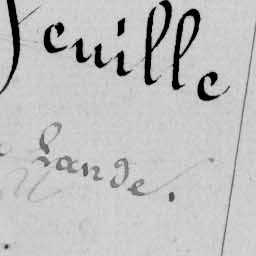 feuille
Lande.